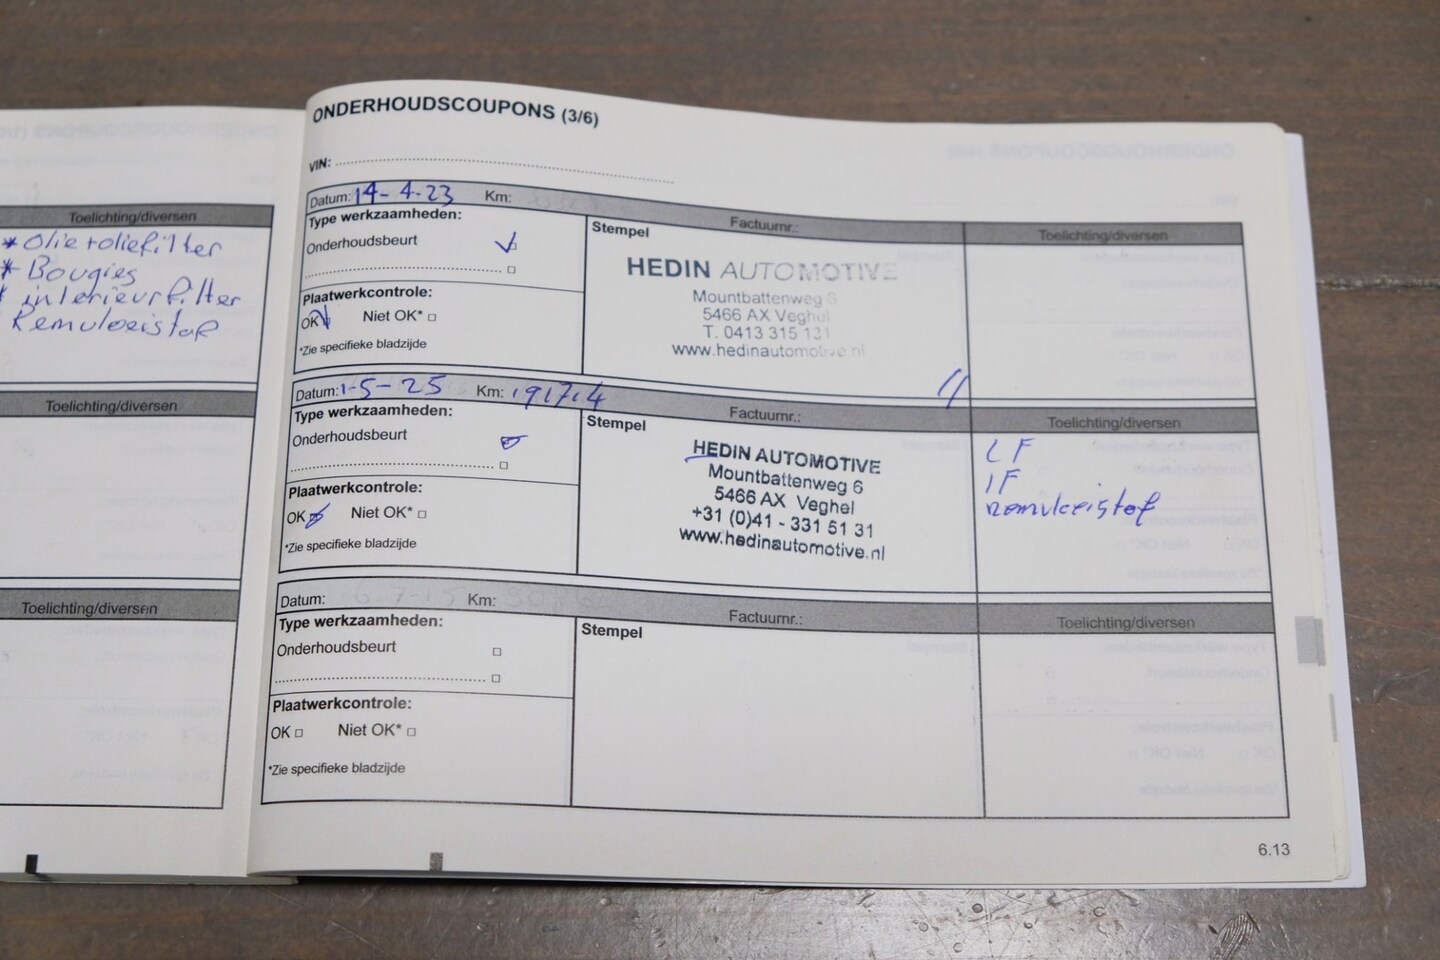 Toelichting/diversen
* Olie + oliefilter
* Bougies
* interieurfilter
Remvloeistof
Toelichting/diversen
Toelichting/diversen
ONDERHOUDSCOUPONS (3/6)
VIN:
Datum: 14-4-23 Km: Factuurnr.: Toelichting/diversen
Type werkzaamheden:
Onderhoudsbeurt
Plaatwerkcontrole:
OK Niet OK*
*Zie specifieke bladzijde
Stempel
HEDIN AUTOMOTIVE
Mountbattenweg 6
5466 AX Veghel
T. 0413 315 131
www.hedinautomotive.nl
Datum: 1-5-25 Km: 19174 Factuurnr.: Toelichting/diversen
Type werkzaamheden:
Onderhoudsbeurt
Plaatwerkcontrole:
OK Niet OK*
*Zie specifieke bladzijde
Stempel
HEDIN AUTOMOTIVE
Mountbattenweg 6
5466 AX Veghel
+31 (0)41 - 331 51 31
www.hedinautomotive.nl
LF
IF
remvloeistof
Datum: Km: Factuurnr.: Toelichting/diversen
Type werkzaamheden:
Onderhoudsbeurt
Plaatwerkcontrole:
OK Niet OK*
*Zie specifieke bladzijde
Stempel
6.13